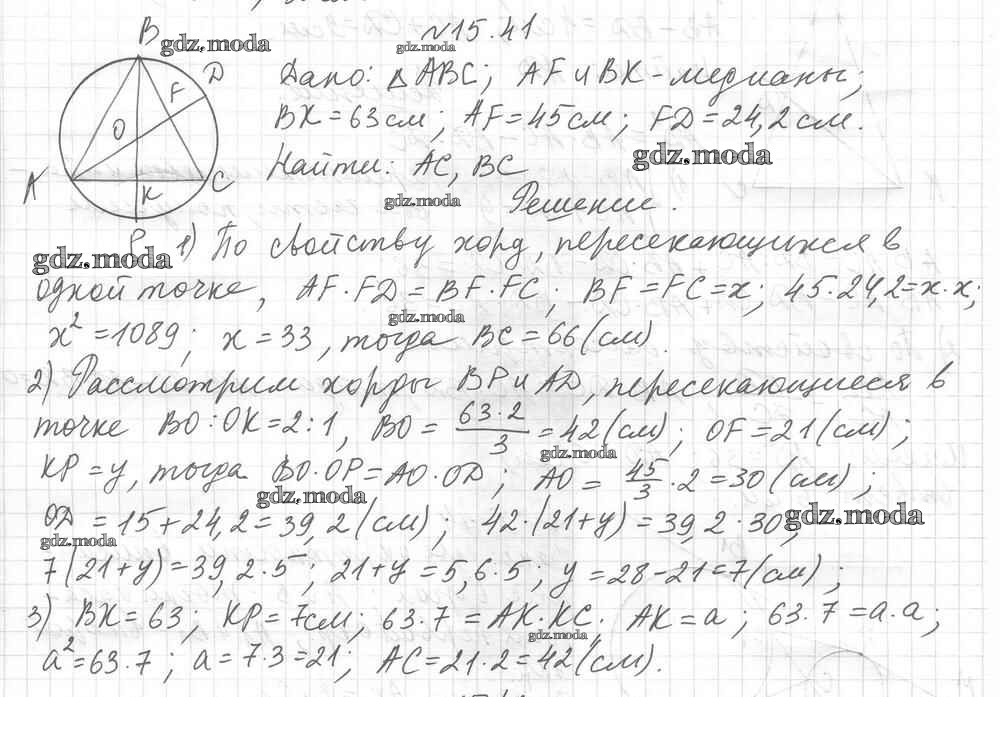 №15.41
B
gdz.moda
gdz.moda
D
F
Дано: △ABC; AF и BK - медианы;
BK = 63 см; AF = 45 см; FD = 24,2 см.
O
gdz.moda
Найти: AC, BC
A
K
C
gdz.moda
Решение.
P
gdz.moda
1) По свойству хорд, пересекающихся в
одной точке, AF·FD = BF·FC; BF = FC = x; 45·24,2 = x·x;
gdz.moda
x² = 1089; x = 33, тогда BC = 66 (см).
2) Рассмотрим хорды BP и AD, пересекающиеся в
точке BO:OK = 2:1, BO = 63·2/3 = 42 (см); OF = 21 (см);
gdz.moda
KP = y, тогда BO·OP = AO·OD; AO = 45/3 · 2 = 30 (см);
gdz.moda
OD = 15 + 24,2 = 39,2 (см); 42·(21+y) = 39,2·30;
gdz.moda
gdz.moda
7(21+y) = 39,2·5; 21+y = 5,6·5; y = 28-21 = 7 (см);
3) BK = 63; KP = 7см; 63·7 = AK·KC; AK = a; 63·7 = a·a;
gdz.moda
a² = 63·7; a = 7·3 = 21; AC = 21·2 = 42 (см).